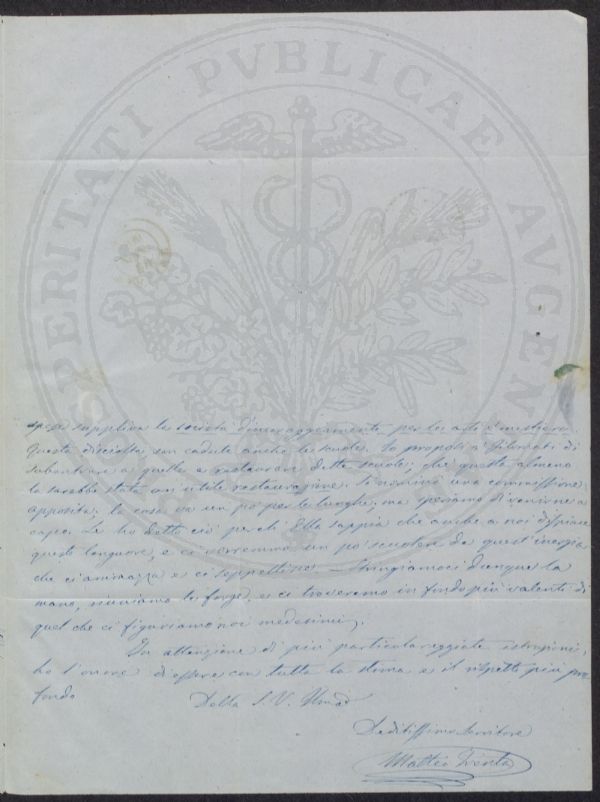 PROSPERITATI PVBLICAE AVGENDAE
spese suppliva la società d'incoraggiamento per le arti e mestieri.
Questa disciolta, son cadute anche le scuole. Io proposi a' Georgofili di
subentrare a quella e restaurare dette scuole; chè questa almeno
la sarebbe stata un'utile restaurazione. Si nominò una commissione
apposita: la cosa va un po' per le lunghe; ma speriamo di venirne a
capo. Le ho detto ciò perchè Ella sappia che anche a noi dispiace
questo languore, e ci vorremmo un po' scuotere da quest'inerzia
che ci ammazza e ci seppellisce. — Stringiamoci dunque la
mano, riuniamo le forze, e ci troveremo in fondo più valenti di
quel che ci figuriamo noi medesimi.
In attenzione di più particolareggiate istruzioni,
ho l'onore di essere con tutta la stima e il rispetto più pro
fondo
Della S. V. Illma
Deditissimo Servitore
Matteo